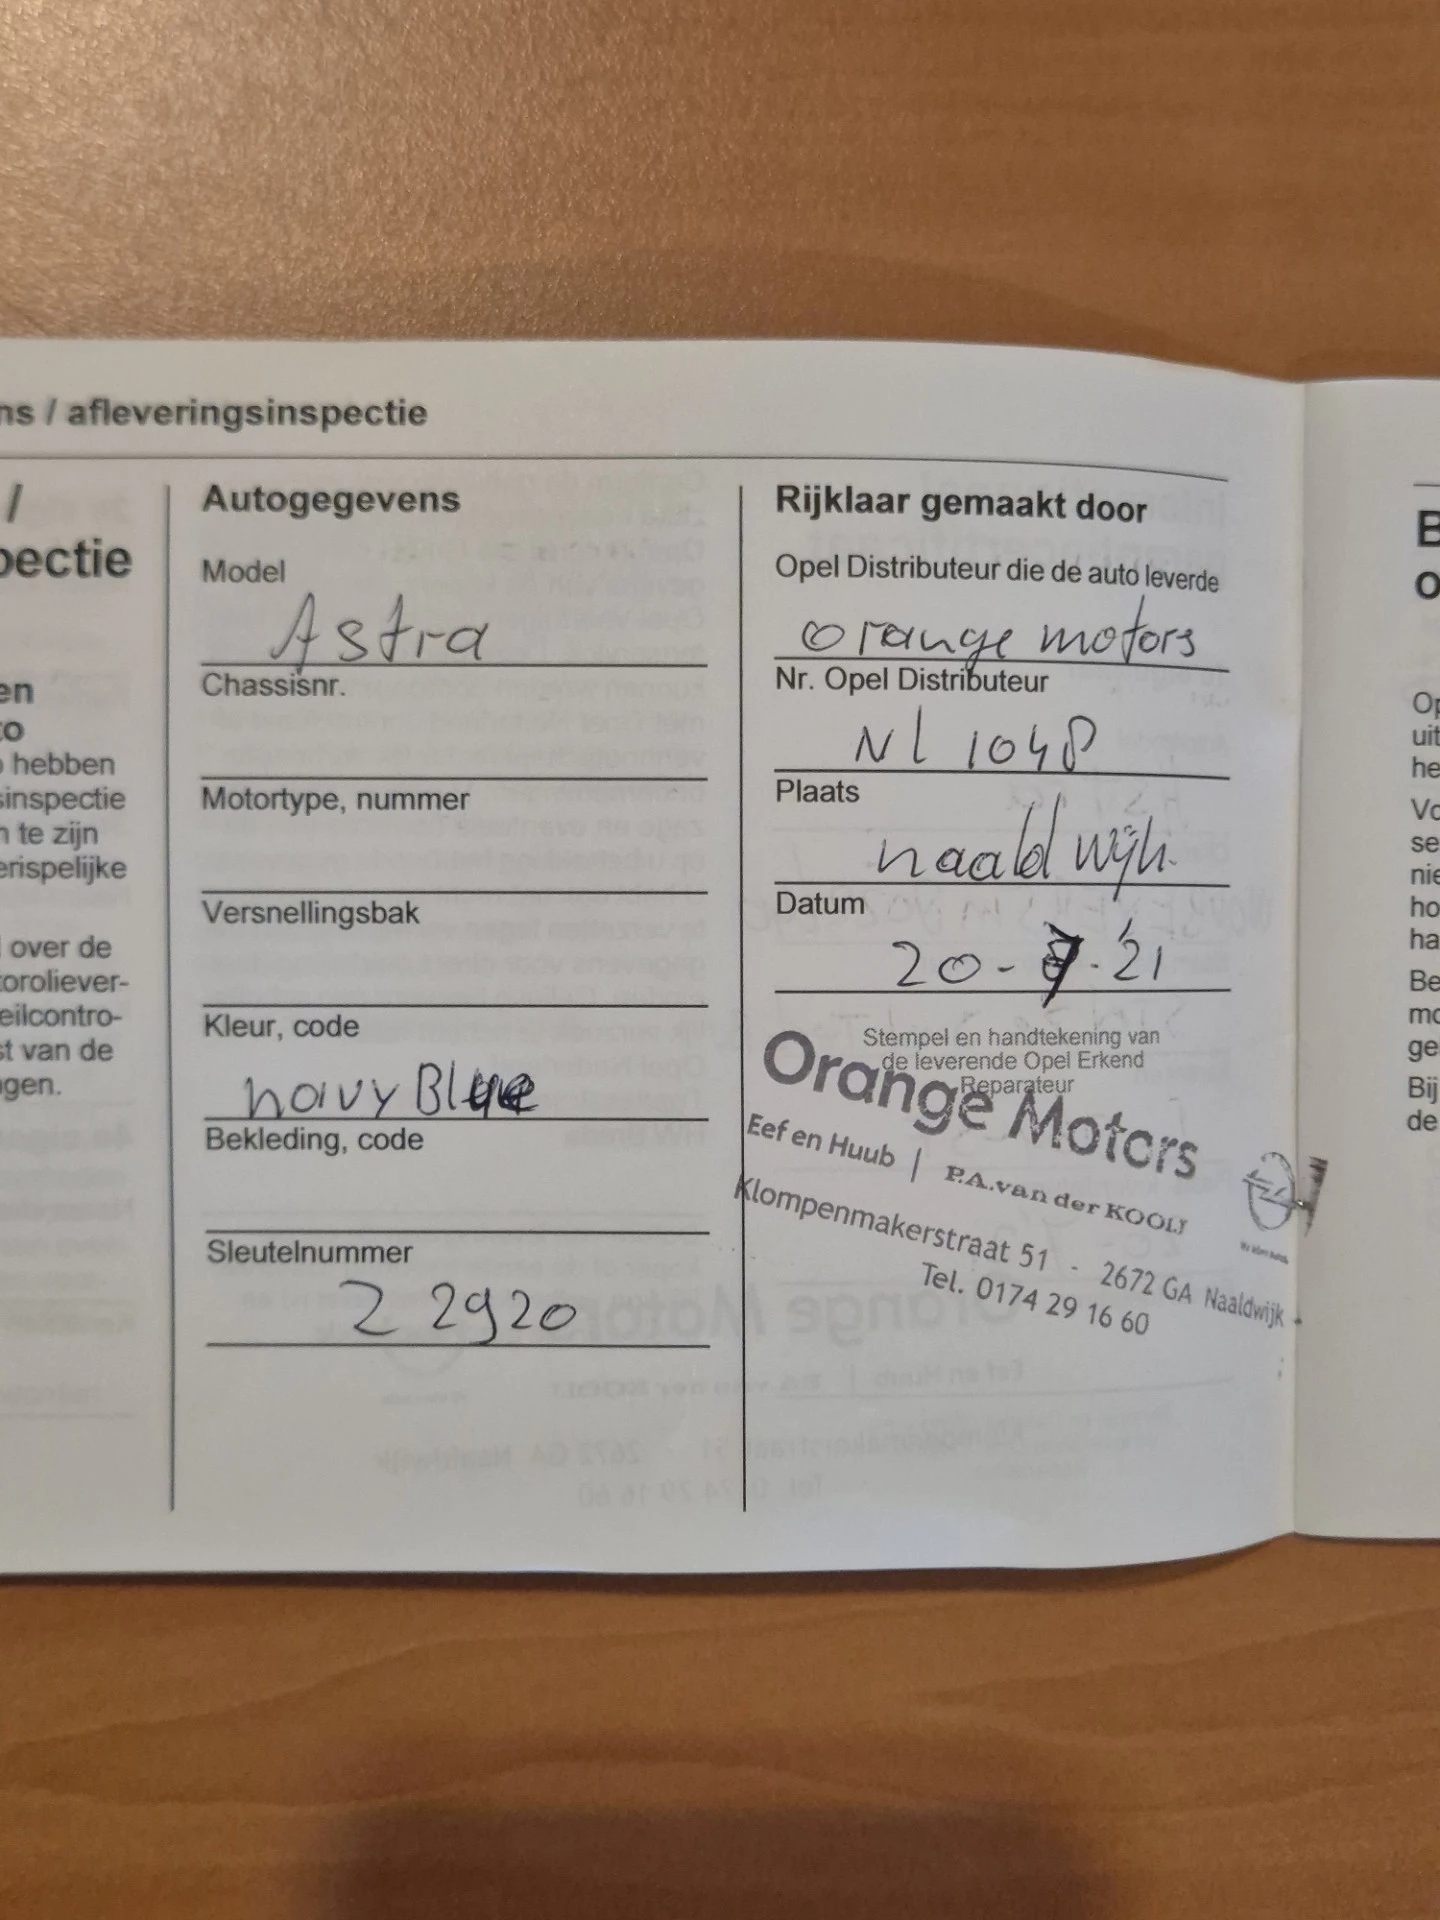 ns / afleveringsinspectie
/
pectie
en
to
hebben
sinspectie
n te zijn
erispelijke
over de
toroliever-
eilcontro-
st van de
ngen.
Autogegevens
Model
Astra
Chassisnr.
Motortype, nummer
Versnellingsbak
Kleur, code
navy Blue
Bekleding, code
Sleutelnummer
Z 2920
Rijklaar gemaakt door
Opel Distributeur die de auto leverde
orange motors
Nr. Opel Distributeur
NL 1048
Plaats
naaldwijk
Datum
20-7-'21
Stempel en handtekening van
de leverende Opel Erkend
Reparateur
Orange Motors
Eef en Huub | P.A. van der KOOIJ
Klompenmakerstraat 51 - 2672 GA Naaldwijk
Tel. 0174 29 16 60
B
o
Op
uit
he
Vo
se
nie
ho
ha
Be
mo
ge
Bij
de